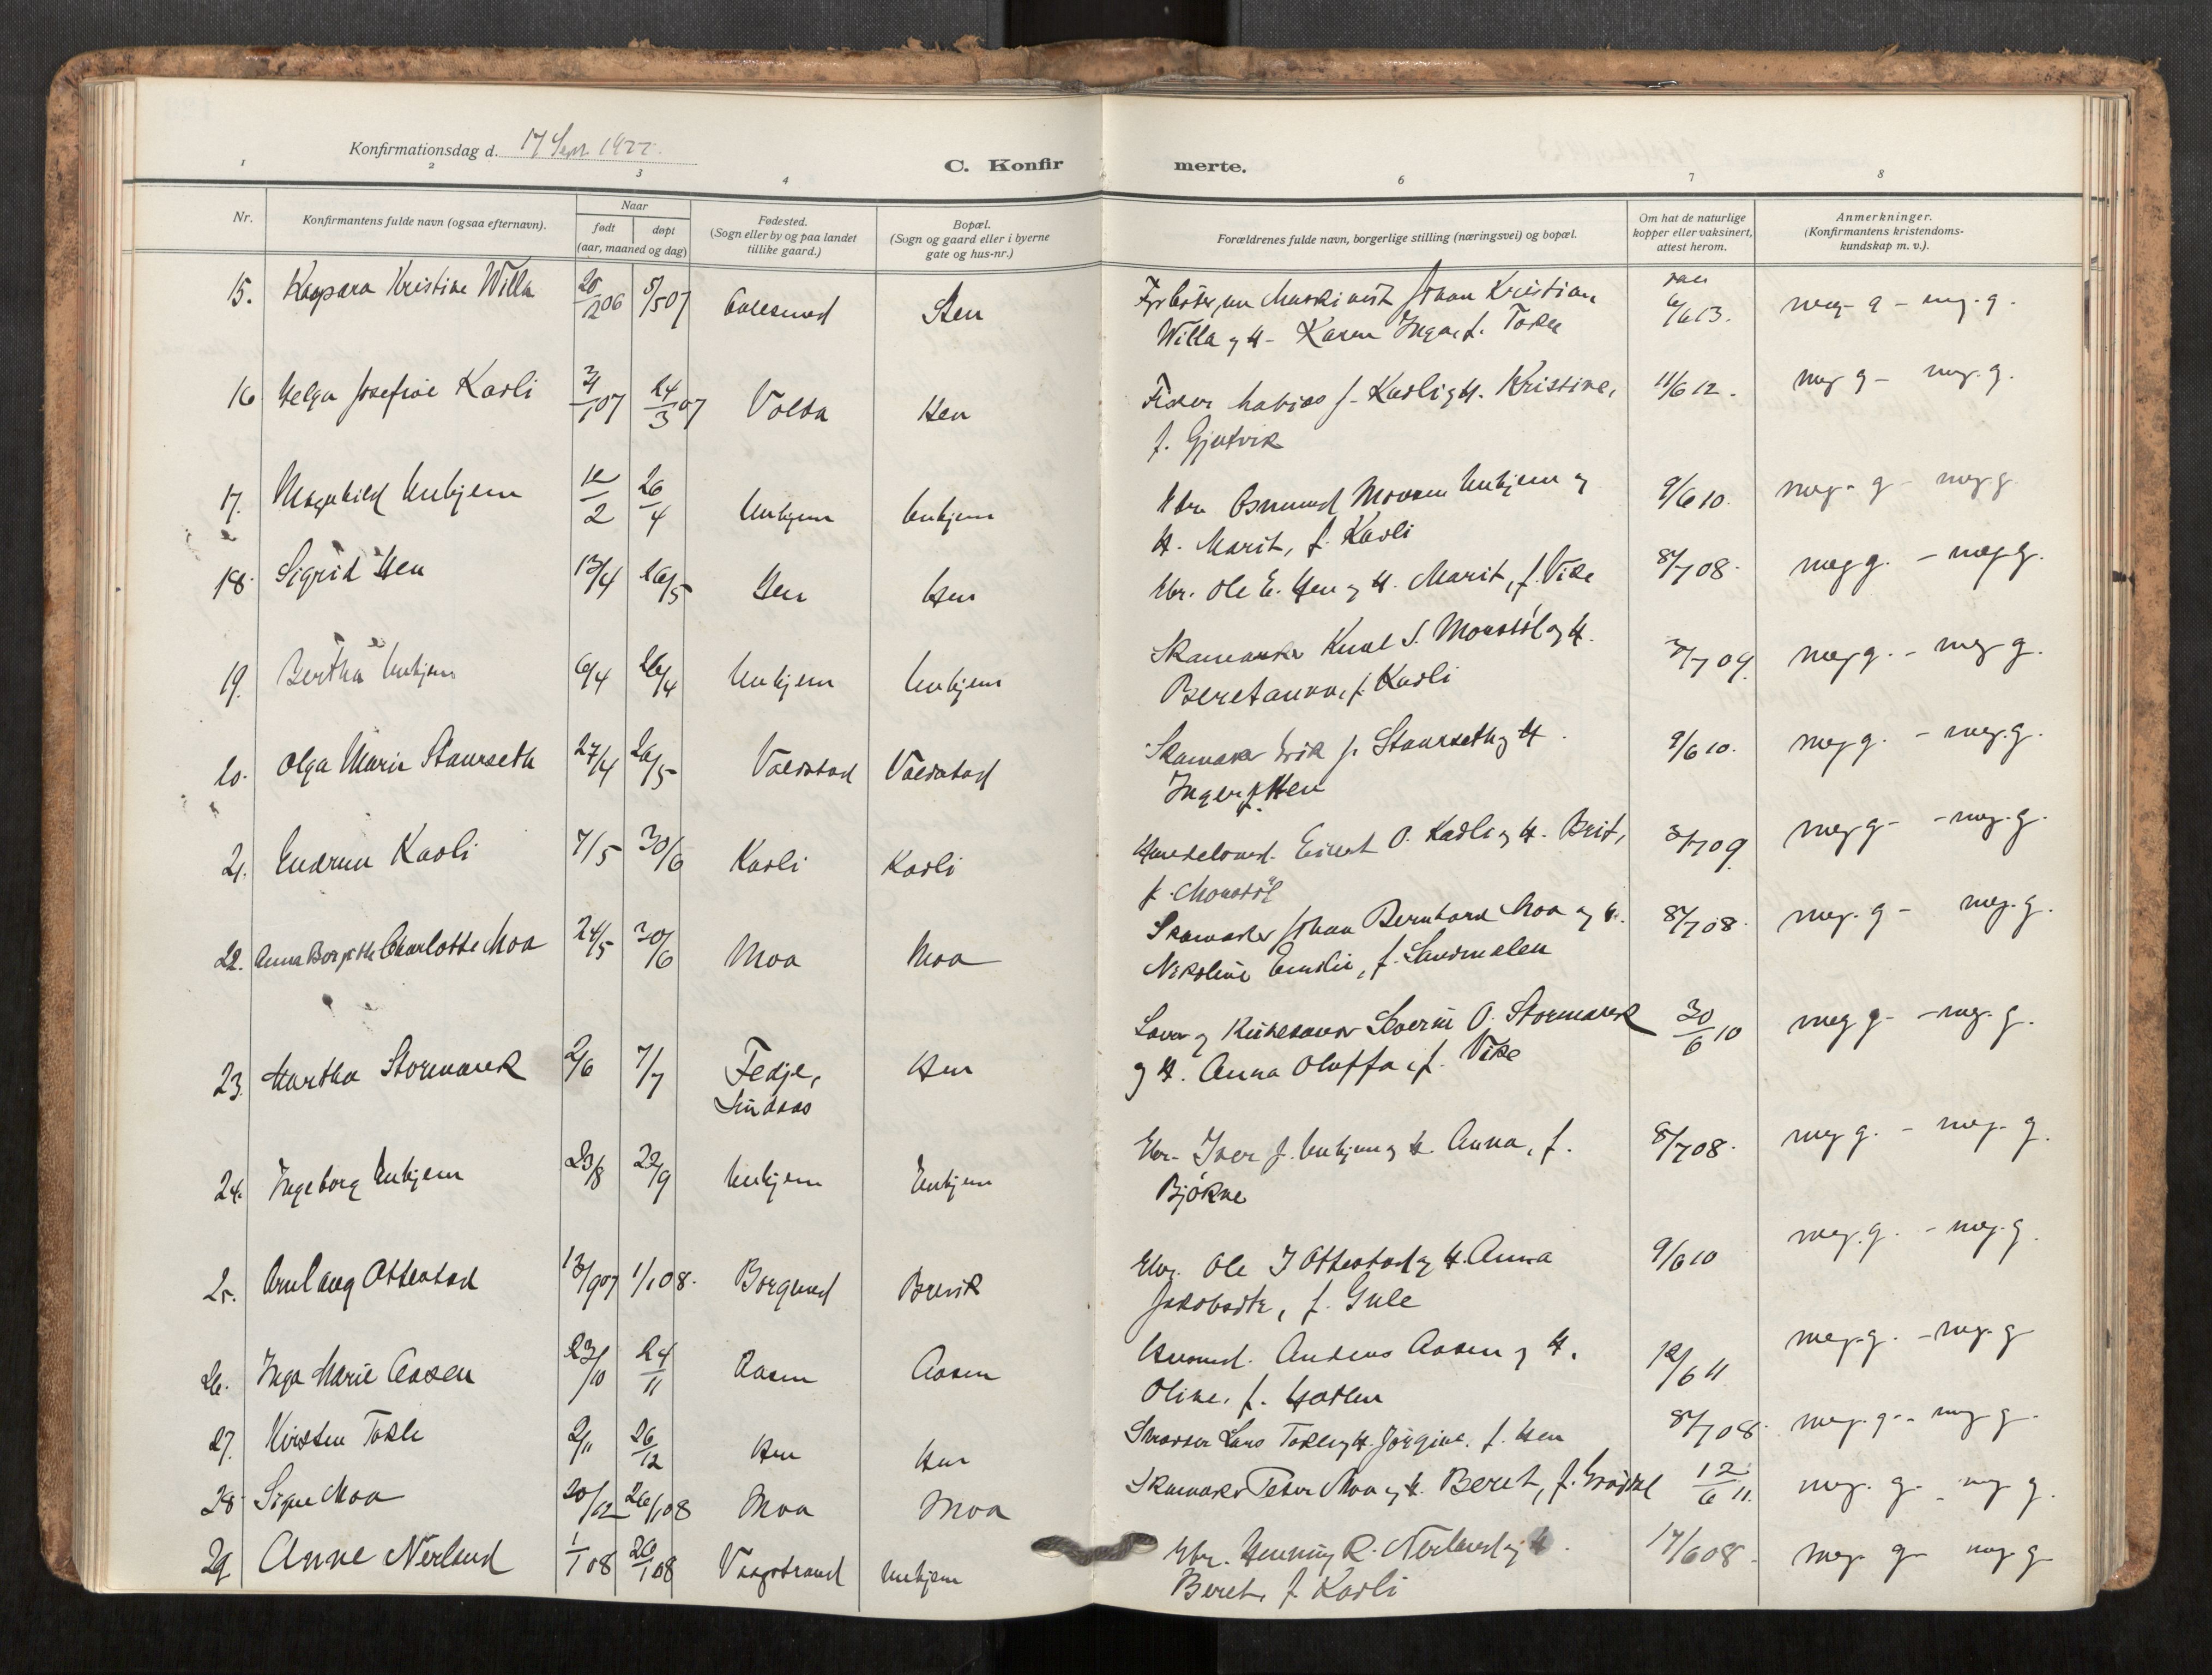 Konfirmationsdag d. 17 Sept 1922.
C. Konfirmerte.
1 2 3 4 6 7 8
Nr.
Konfirmantens fulde navn (ogsaa efternavn).
Naar
født
døpt
(aar, maaned og dag)
Fødested.
(Sogn eller by og paa landet
tillike gaard.)
Bopæl.
(Sogn og gaard eller i byerne
gate og hus-nr.)
Forældrenes fulde navn, borgerlige stilling (næringsvei) og bopæl.
Om hat de naturlige
kopper eller vaksinert,
attest herom.
Anmerkninger.
(Konfirmantens kristendoms-
kundskap m. v.).
15. Kaspara Kristine Willa 5/5 07 Aalesund Hen Johan Kristian 6/6 13. meg. g - meg. g.
Willa og H. Karen Inga, f. Tokle
16 Helga Josefine Kavli 24/3 07 Volda Hen Fisker J. Kavli og H. Kristine, 11/6 12. meg g - meg. g.
f. Gjutvik
17. Magnhild Unhjem 12/2 26/4 Unhjem Unhjem Gbr. Osmund Monsen Unhjem og 9/6 10. meg. g - meg g.
H. Marit, f. Kavli
18. Sigrid Hen 13/4 26/5 Hen Hen Gbr. Ole E. Hen og H. Marit, f. Vike 8/7 08. meg g. - meg. g.
19. Bertha Unhjem 6/4 26/4 Unhjem Unhjem Skomaker S. Monssöl og H. 3/7 09. meg g. - meg g.
Beretanna, f. Kavli
20. Olga Marie Staurseth 27/4 26/5 Voldstad Voldstad Skomaker Erik J. Staurseth og H. 9/6 10. meg g. - meg. g.
Inger f. Hen
21. Gudrun Kavli 7/5 30/6 Kavli Kavli Einert O. Kavli og H. Berit, 3/7 09 meg g - meg. g.
f. Monssöl
22. Anna Borgitte Charlotte Moa 24/5 30/6 Moa Moa Skomaker Johan Bernhard Moa og H. 8/7 08. meg. g - meg. g.
Nikoline Emilie, f. Sandmælen
23. Martha Stormark 2/6 7/7 Fedje, Hen Lærer og Kirkesanger Severin O. Stormark 30/6 10 meg g - meg. g.
Lindaas
og H. Anna Oluffa, f. Vike
24. Ingeborg Unhjem 23/8 22/9 Unhjem Unhjem Gbr. Iver J. Unhjem og H. Anna, f. 8/7 08. meg g. - meg. g.
Bjökne
25. Arnlaug Ottestad 13/9 07 1/1 08. Borgund Brevik Gbr. Ole J Ottestad og H. Anna 9/6 10 meg. g. - meg. g.
Jakobsdtr, f. Gule
26. Inga Marie Aasen 23/10 24/11 Aasen Aasen Husmd. Anders Aasen og H. 12/6 11 meg. g. - meg. g
Oline, f. Hatlen
27. Kirsten Tokle 2/11 26/12 Hen Hen Lars Tokle og H. Jörgine, f. Hen 8/7 08. meg. g. - meg g.
28. Signe Moa 20/12 26/1 08 Moa Moa Skomaker Peter Moa og H. Beret, f. 12/6 11. meg. g. - meg g.
29 Anne Nerland 1/1 08 26/1 08 Vaagstrand Unhjem Gbr. Henning R. Nerland og H. 17/6 08. meg. g - meg g
Beret, f. Kavli